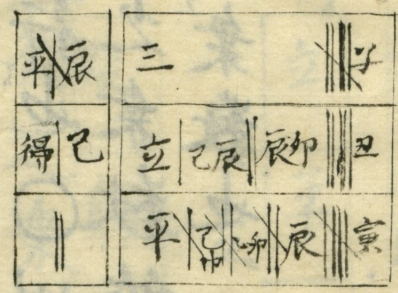 子 |||| 三
丑 |||| 卯辰 || 辰巳 | 立
寅 |||| 辰 ||| 卯 || 巳巾 | 平
辰 | 平
巳 | 得
||